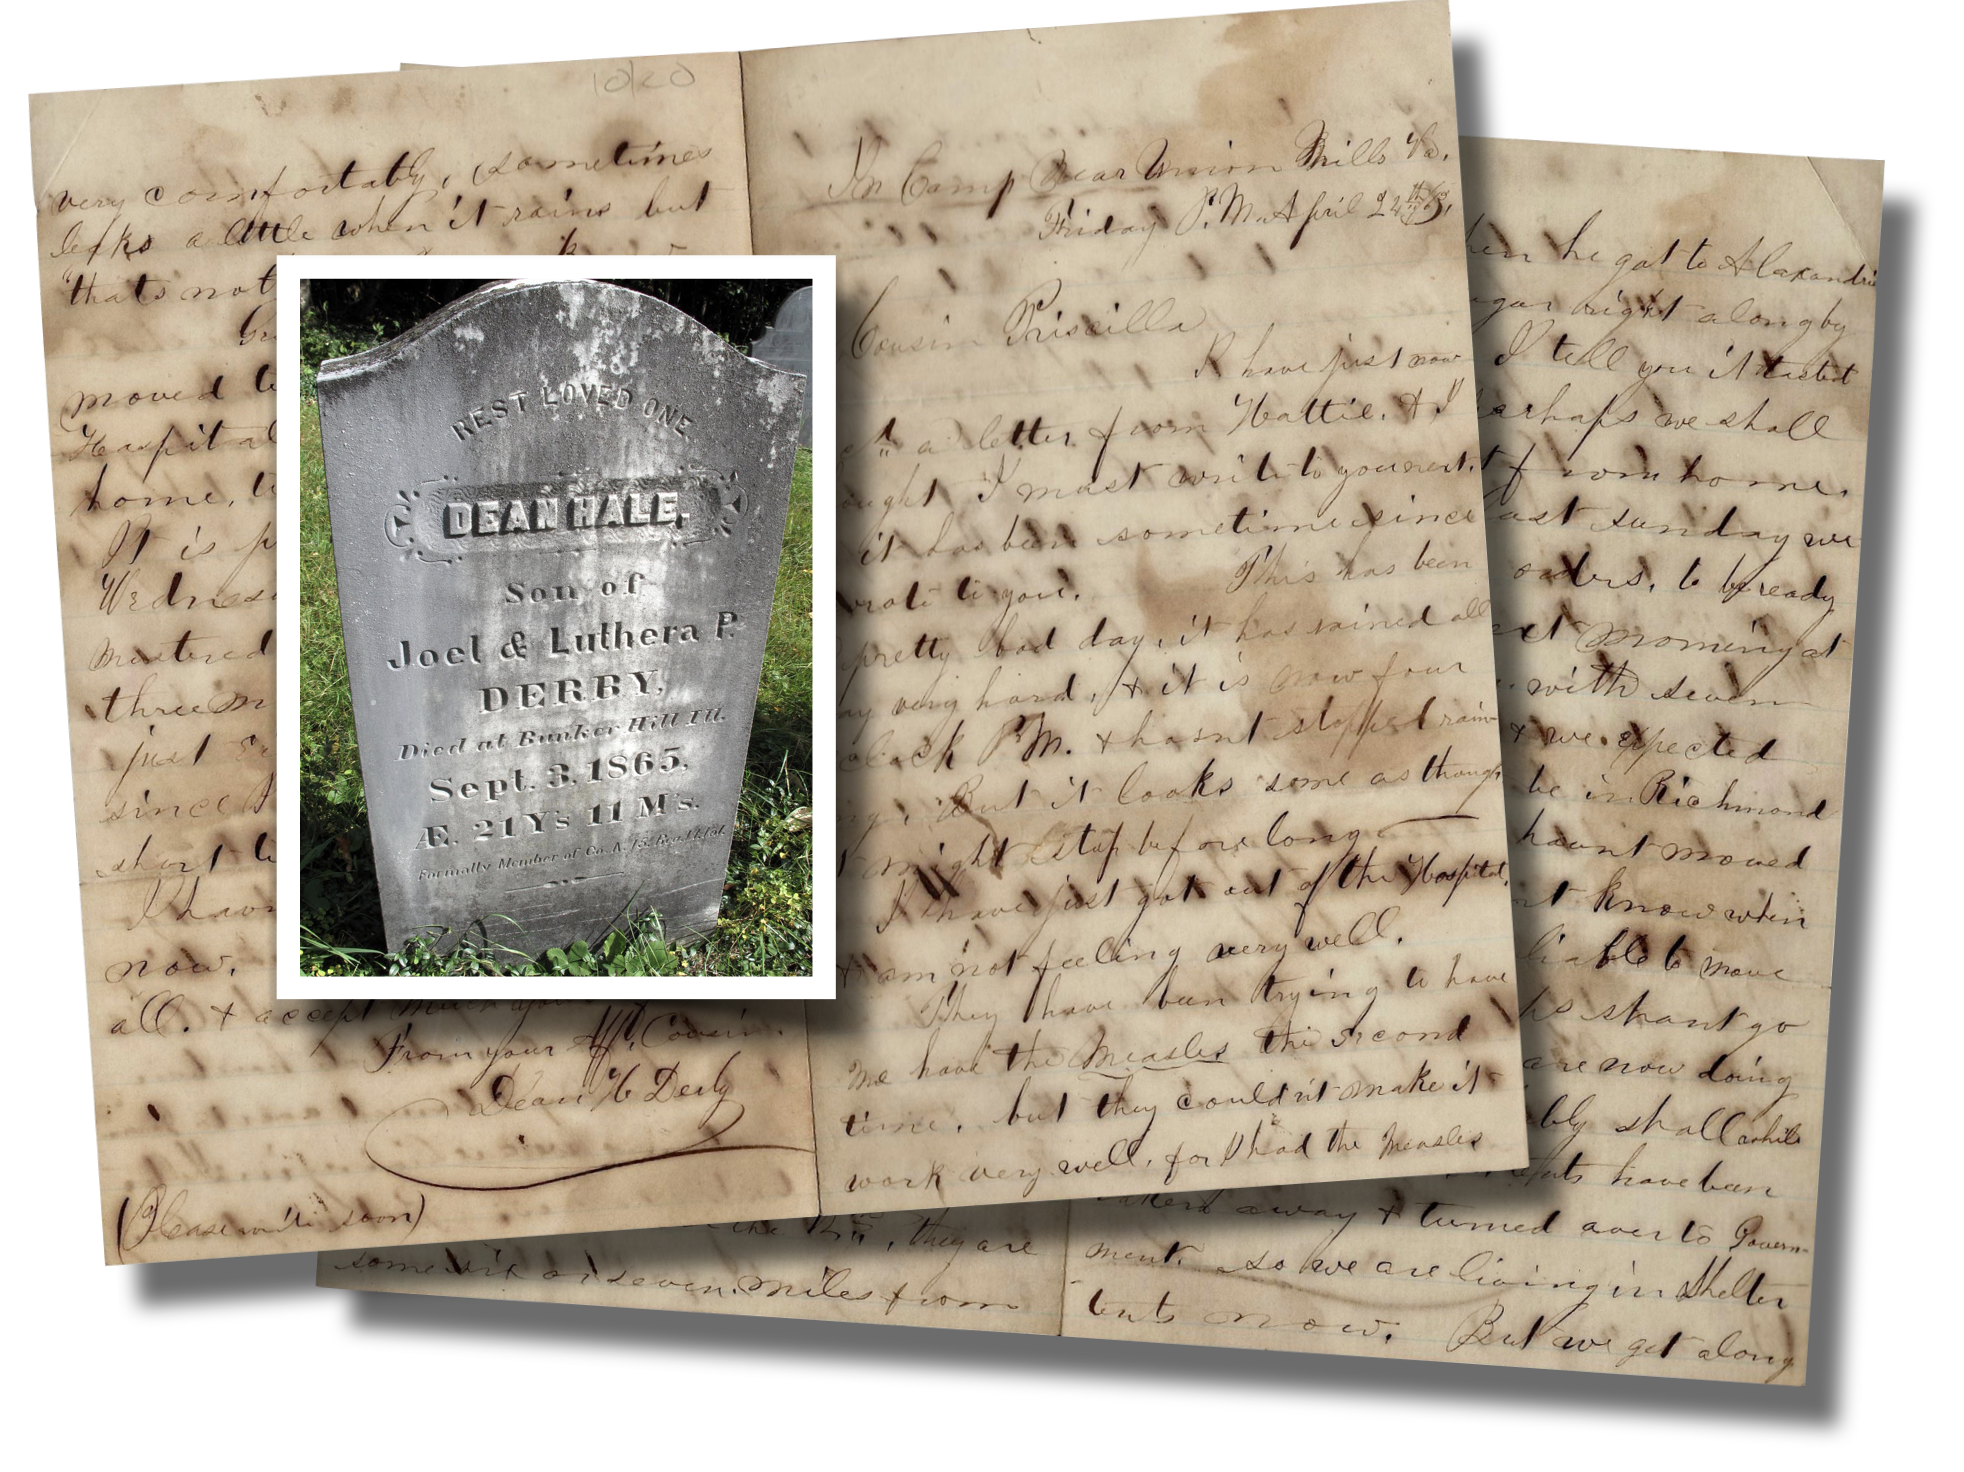 10/20
very comfortably, sometimes
leaks a little when it rains but
"thats not
moved to
Hospital
home, to
It is
Wednes
mustered
three m
just
since
short
I hav
now.
all. & accept much
From your Aff. Cousin.
Dean H Derby
(Please write soon)
REST LOVED ONE
DEAN HALE,
Son of
Joel & Luthera P.
DERBY,
Died at Bunker Hill Ill.
Sept. 3, 1865,
Æ. 21 Y's 11 M's.
Formally Member of Co. A. 15.
In Camp Near Union Mills Va.
Friday P.M. April 24th 63,
Cousin Priscilla
I have just now
a letter from Hattie. & I
ought I must write to you next.
it has been sometime since
wrote to you. This has been
pretty bad day, it has rained all
ay very hard, & it is now four
clock P.M. & hasnt stopped rain-
ng. But it looks some as though
it might stop before long.
I have just got out of the Hospital,
& am not feeling very well.
They have been trying to have
me have the Measles the second
time. but they couldn't make it
work very well, for I had the Measles
hen he got to Alexandria
ugar right along by
I tell you it tasted
perhaps we shall
t from home.
ast sunday we
orders, to be ready
morning at
with seven
& we expected
be in Richmond
havnt moved
nt know when
liable to move
shant go
are now doing
bly shall while
ents have been
taken away & turned over to Govern-
ment. so we are living in Shelter
tents now. But we get along
the 12th, they are
some six or seven miles from